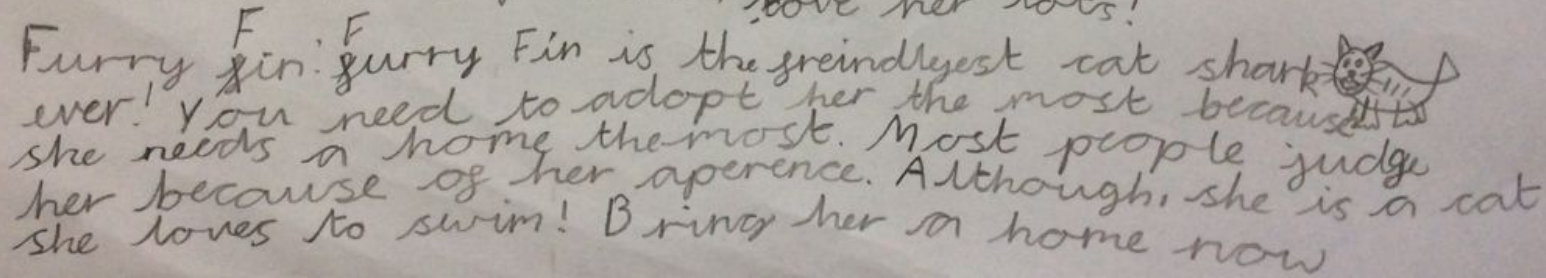 love her lots!
Furry Fin: Furry Fin is the freindlyest cat shark
ever! You need to adopt her the most because
she needs a home the most. Most people judge
her because of her aperence. Although, she is a cat
she loves to swim! Bring her a home now